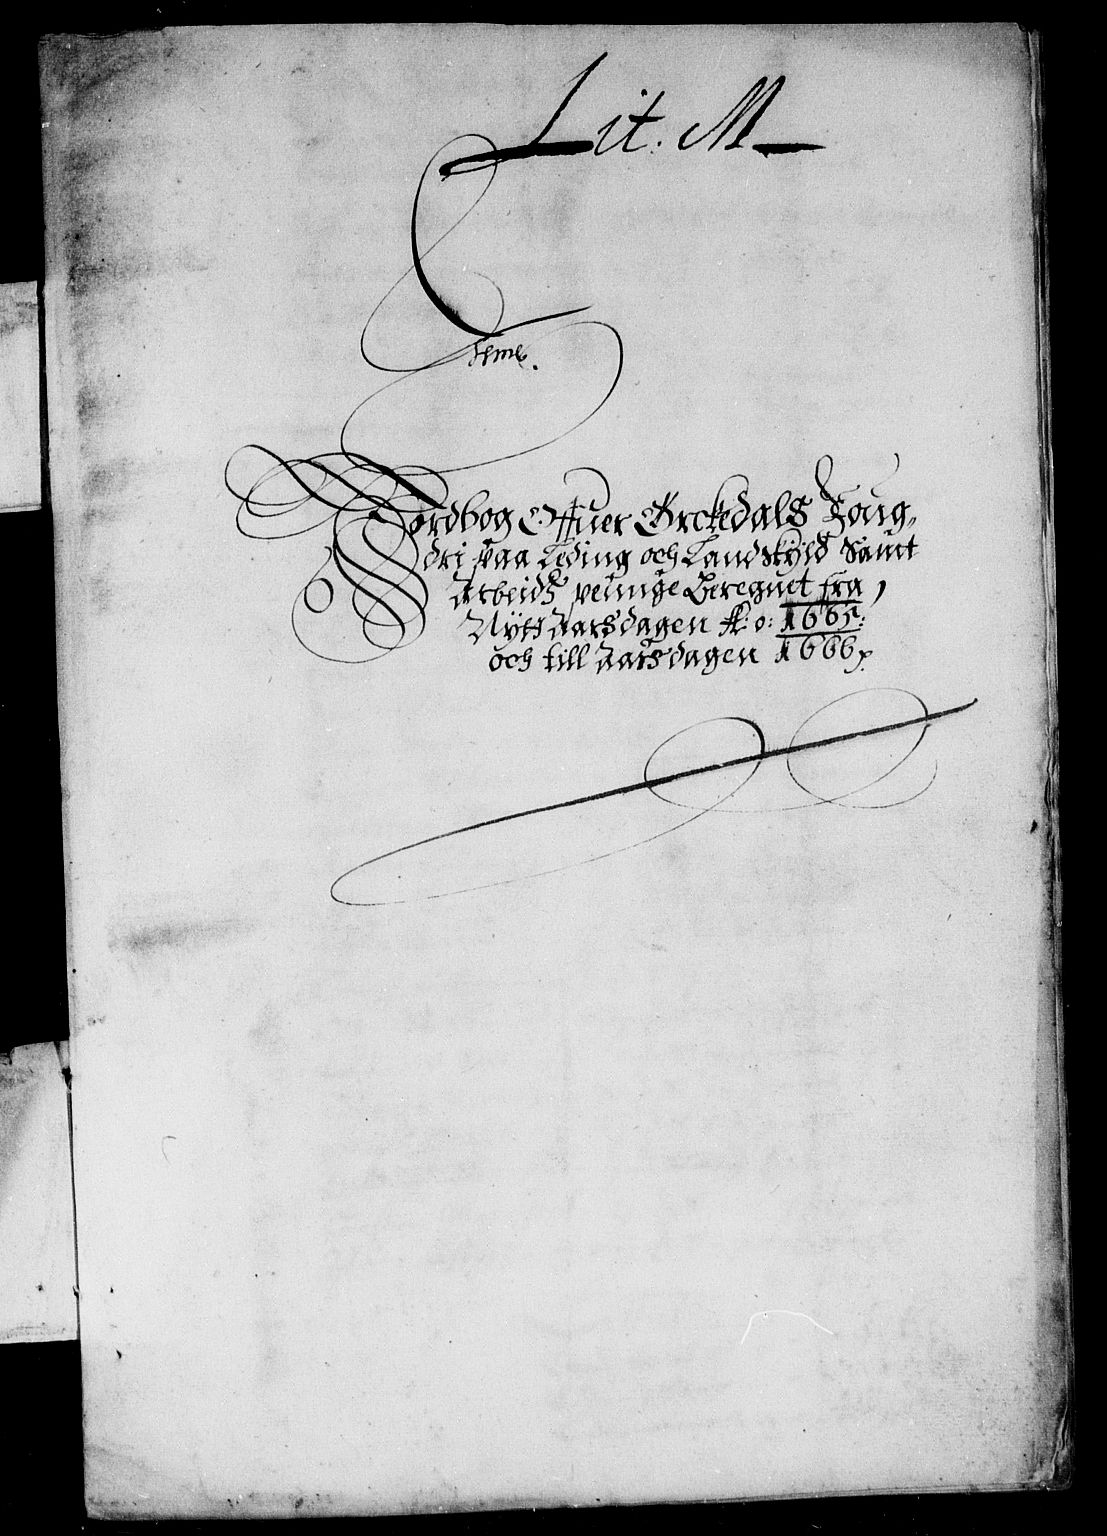 Lit. M
Jordbog Offuer Örckedals Foug„
dri paa Leding och Landskÿld Samt
Arbeids peninge Beregnet fra
Nÿtt Aarsdagen A.o: 1665:
och till Aarsdagen 1666